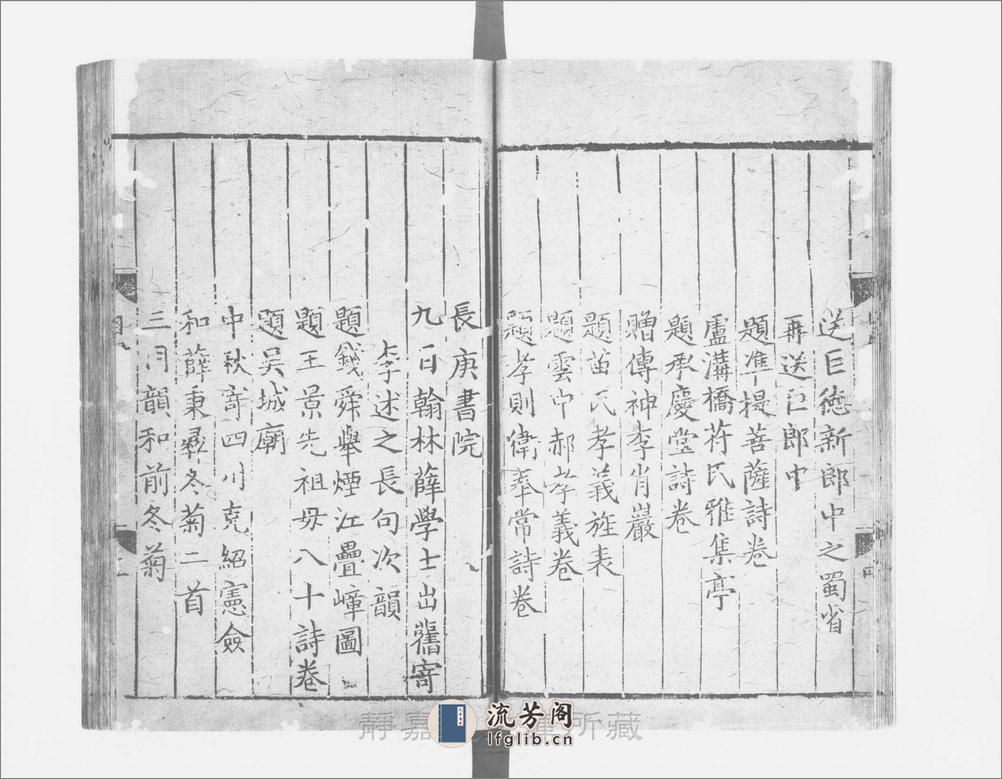 送巨德新郎中之蜀省
再送巨郎中
題準提菩薩詩卷
盧溝橋苻氏雅集亭
題承慶堂詩卷
贈傳神李肖巖
題苗氏孝義旌表
題雲中郝孝義卷
題孝則偉奉常詩卷
長庚書院
九日翰林薛學士出舊寄
李述之長句次韻
題錢舜舉煙江疊嶂圖
題王景先祖母八十詩卷
題吳城廟
中秋寄四川克紹憲僉
和薛秉彝冬菊二首
三月韻和前冬菊
靜嘉 所藏
流芳阁
lfglib.cn